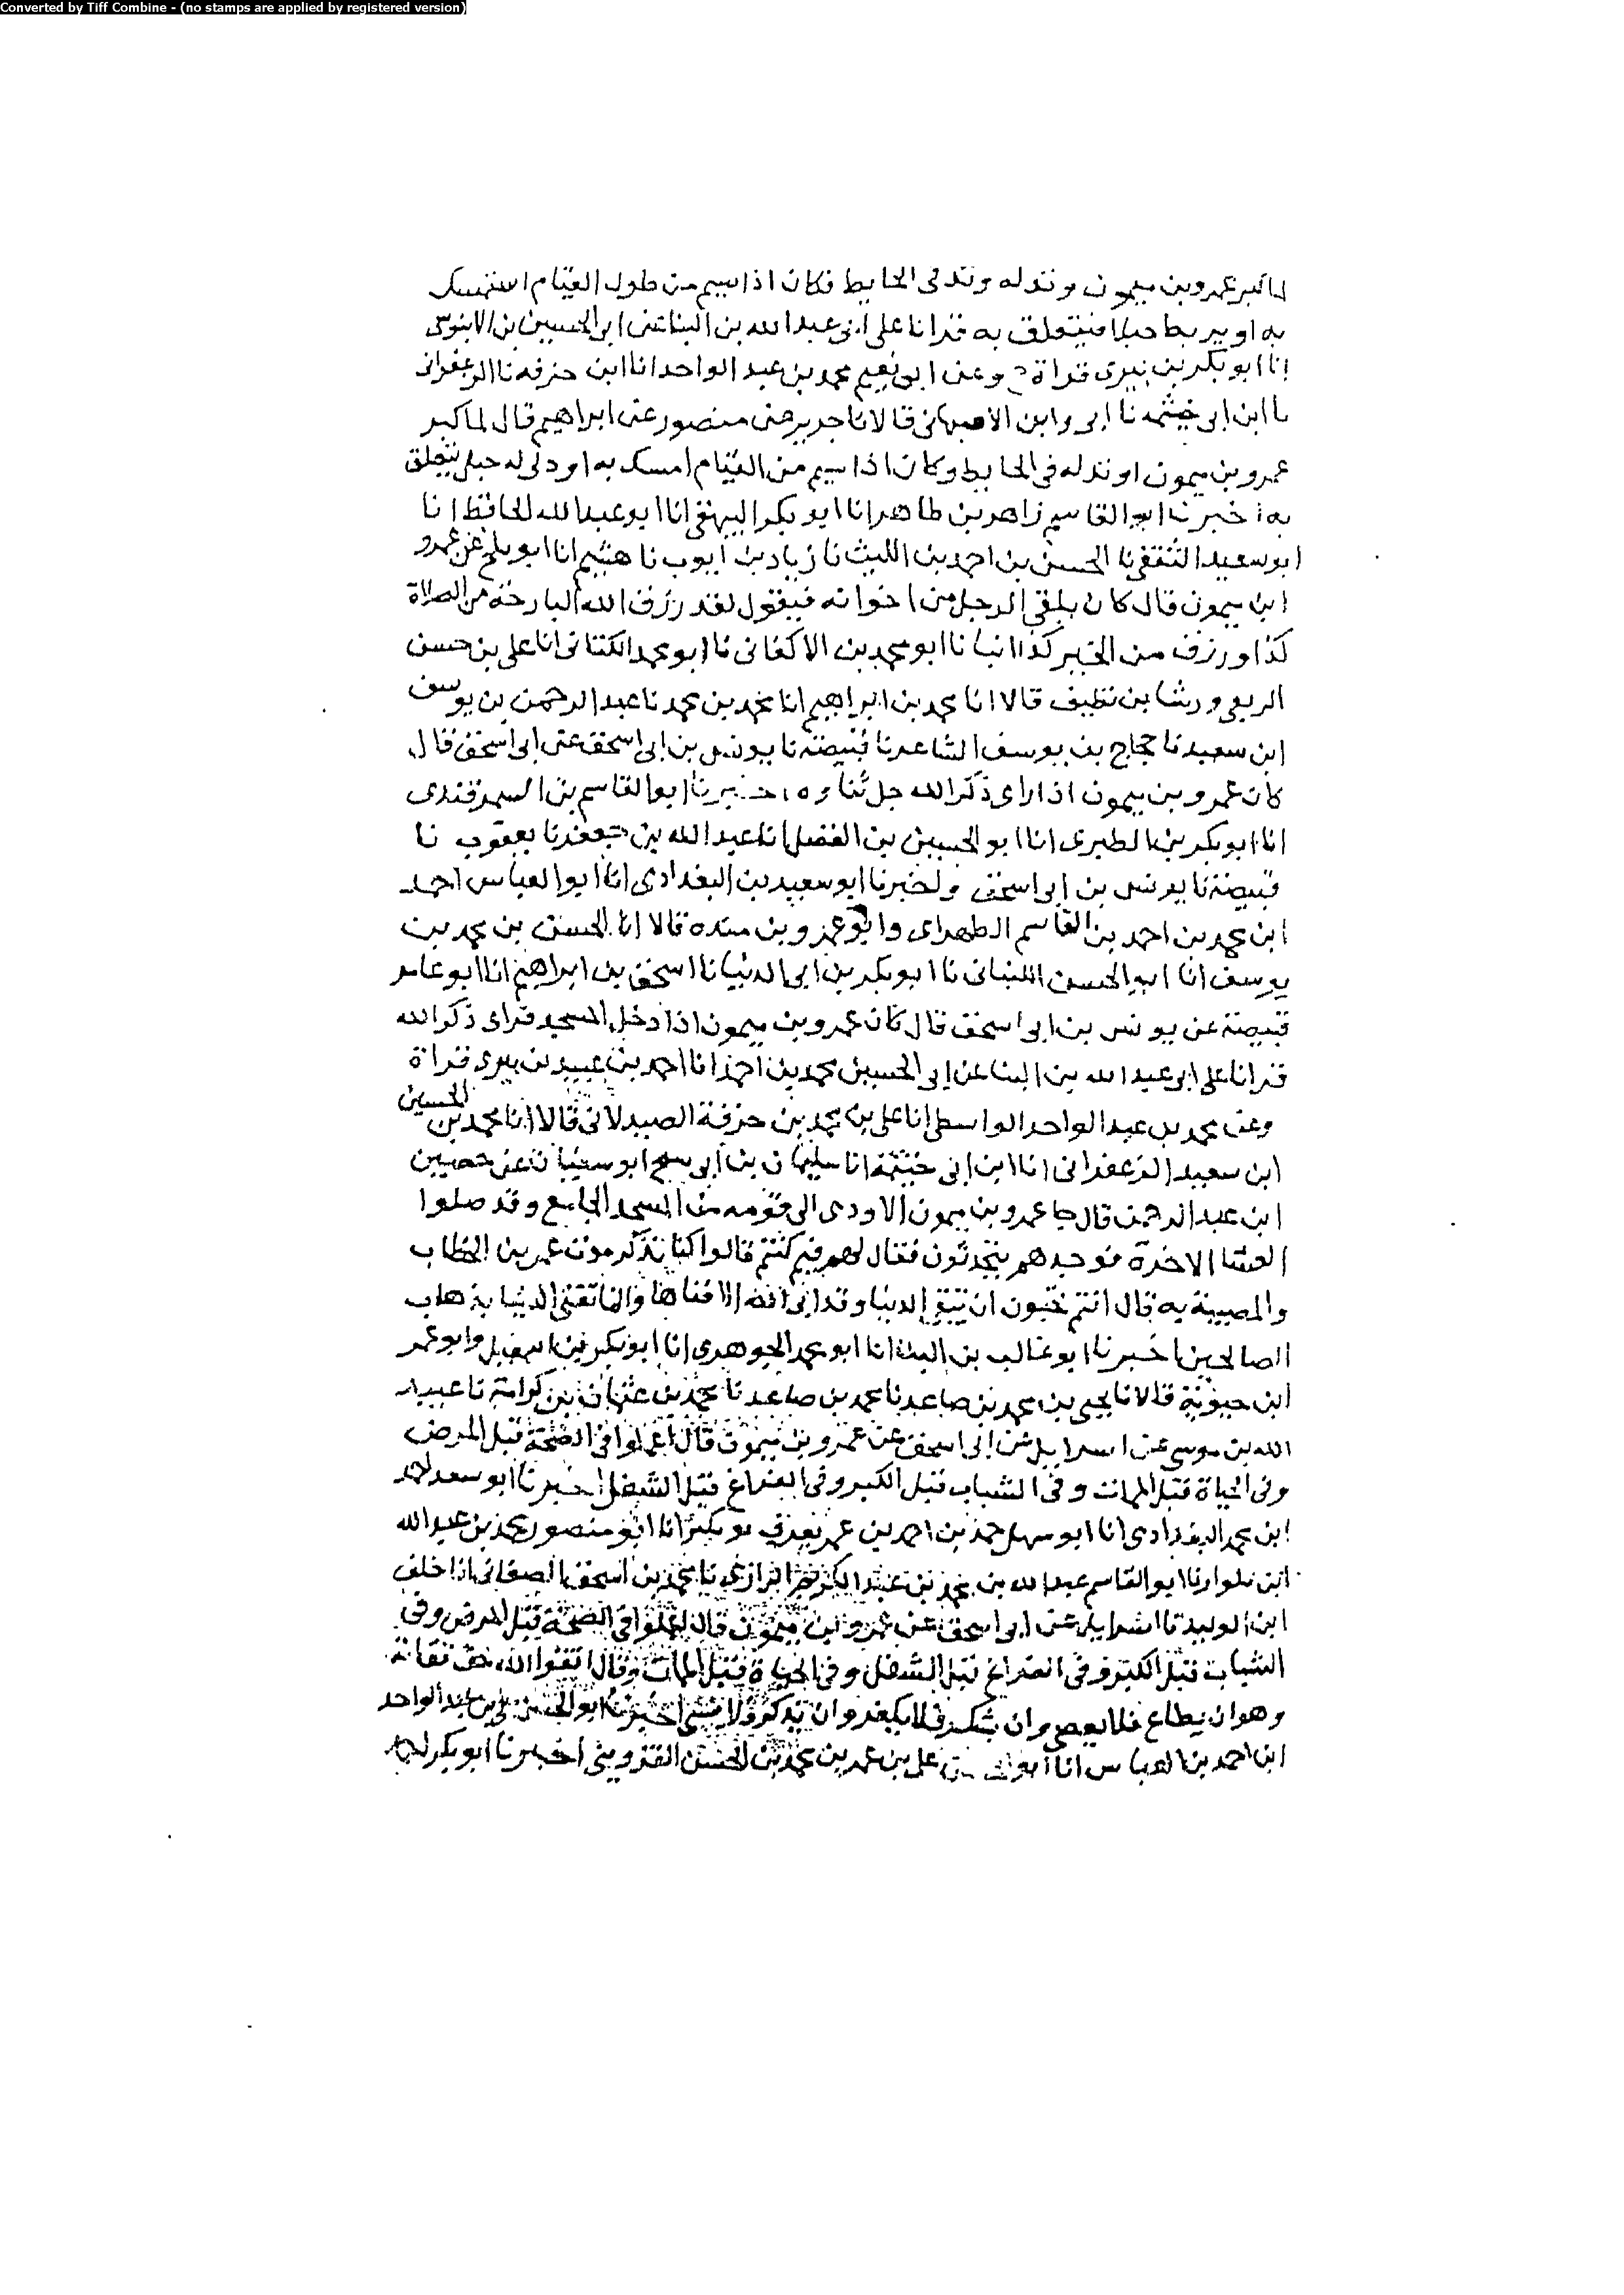 Converted by Tiff Combine - (no stamps are applied by registered version)
لما كبر عمرو بن ميمون وتد له وتد في الحايط فكان اذا سيم من طول القيام استمسك
به او يربط حبلا فيتعلق به قرانا على ابي عبد الله بن البنا عن ابي الحسين بن الابنوسي
انا ابو بكر بن بيرى قراة ح وعن ابي نعيم محمد بن عبد الواحد انا ابن خزفه نا الزعفراني
نا ابن ابي خيثمه نا ابي وابن الاصبهاني قالا نا جرير عن منصور عن ابراهيم قال لما كبر
عمرو بن ميمون اوتد له في الحايط وكان اذا سيم من القيام امسك به او دلي له حبل يتعلق
به اخبرنا ابو القاسم زاهر بن طاهر انا ابو بكر البيهقي انا ابو عبد الله الحافظ انا
ابو سعيد الثقفي نا الحسن بن احمد بن الليث نا زياد بن ايوب نا هشيم انا ابو بلج عن عمرو
ابن ميمون قال كان يلقى الرجل من اخوانه فيقول لقد رزق الله البارحة من الصلاة
كذا ورزق من الخير كذا انبانا ابو محمد بن الاكفاني نا ابو محمد الكتاني انا علي بن حسن
الربعي ورشا بن نظيف قالا انا محمد بن ابراهيم انا محمد بن محمد نا عبد الرحمن بن يوسف
ابن سعيد نا حجاج بن يوسف الشاعر نا قبيصة نا يونس بن ابي اسحق عن ابي اسحق قال
كان عمرو بن ميمون اذا راى ذكر الله جل ثناوه اخبرنا ابو القاسم بن السمرقندى
انا ابو بكر بن الطبرى انا ابو الحسين بن الفضل انا عبد الله بن جعفر نا يعقوب نا
قبيصة نا يونس بن ابي اسحق واخبرنا ابو سعيد بن البغدادى انا ابو العباس احمد
ابن محمد بن احمد بن القاسم الطهرانى وابو عمرو بن منده قالا انا الحسن بن محمد بن
يوسف انا ابو الحسن اللنباني نا ابو بكر بن ابي الدنيا نا اسحق بن ابراهيم انا ابو عامر
قبيصة عن يونس بن ابي اسحق قال كان عمرو بن ميمون اذا دخل المسجد فراى ذكر الله
قرانا على ابي عبد الله بن البنا عن ابي الحسين محمد بن احمد انا احمد بن عبيد بن بيرى قراة
وعن محمد بن عبد الواحد الواسطي انا علي بن محمد بن خزفة الصيدلاني قالا انا محمد بن الحسين
ابن سعيد الزعفراني انا ابن ابي خيثمة انا سليمان بن ابي شيخ ابو سفيان عن حصين
ابن عبد الرحمن قال جا عمرو بن ميمون الاودى الى قومه من المسجد الجامع وقد صلوا
العشا الاخرة فوجدهم يتحدثون فقال لهم فيم كنتم قالوا كنا نذكر موت عمر بن الخطاب
والمصيبة به قال انتم تحبون ان تبقى الدنيا وقد ابى الله الا فناها وانما تفنى الدنيا بذهاب
الصالحين اخبرنا ابو غالب بن البنا انا ابو محمد الجوهرى انا ابو بكر بن اسمعيل وابو عمر
ابن حيوية قالا نا يحيى بن محمد بن صاعد نا محمد بن صاعد نا محمد بن عثمان بن كرامة نا عبيد
الله بن موسى عن اسرايل عن ابي اسحق عن عمرو بن ميمون قال اعملوا في الصحة قبل المرض
وفي الحياة قبل الممات وفي الشباب قبل الكبر وفي الفراغ قبل الشغل اخبرنا ابو سعد احمد
ابن محمد البغدادى انا ابو سهل حمد بن احمد بن عمر انا ابو منصور محمد بن عبد الله
انا ابو القاسم عبد الله بن محمد بن عبد الكريم الرازي نا محمد بن اسحق الصغاني انا خلف
ابن الوليد نا اسرايل عن ابي اسحق عن عمرو بن ميمون قال اعملوا في الصحة قبل المرض وفي
الشباب قبل الكبر وفي الفراغ قبل الشغل وفي الحياة قبل الممات وقال اتقوا الله حق تقاته
وهو ان يطاع فلا يعصى وان يشكر فلا يكفر وان يذكر فلا ينسى اخبرنا ابو الحسن علي بن عبد الواحد
ابن احمد بن العباس انا ابو الحسن علي بن عمر بن محمد بن الحسن القزويني اخبرنا ابو بكر